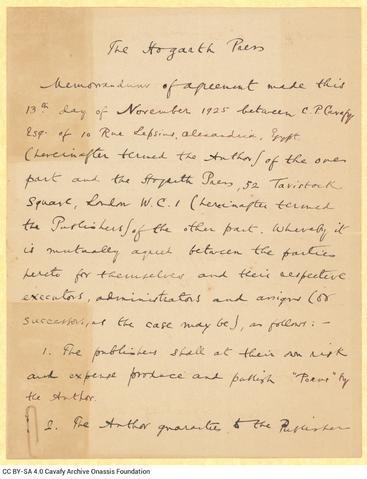 The Hogarth Press
Memorandum of agreement made this
13th day of November 1925 between C. P. Cavafy
Esq. of 10 Rue Lepsius, Alexandria, Egypt
(hereinafter termed the Author) of the one
part and the Hogarth Press, 52 Tavistock
Square, London W.C.1 (hereinafter termed
the Publishers) of the other part. Whereby it
is mutually agreed between the parties
hereto for themselves and their respective
executors, administrators and assigns (or
successors, as the case may be), as follows:-
1. The publishers shall at their own risk
and expense produce and publish "Poems" by
the Author.
2. The Author guarantees to the Publisher
CC BY-SA 4.0 Cavafy Archive Onassis Foundation